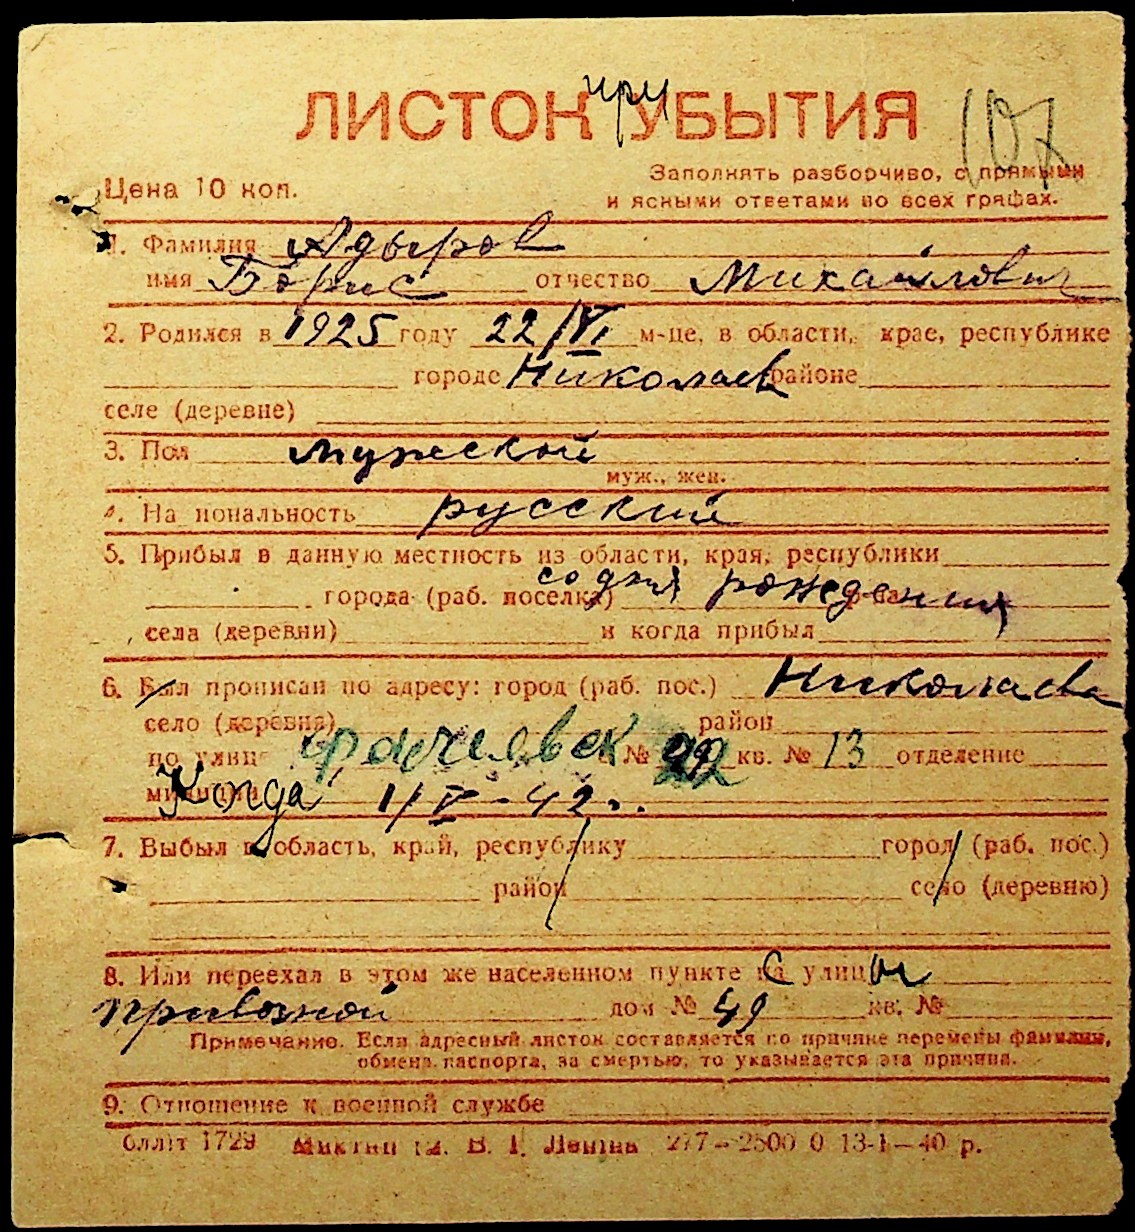 ЛИСТОК при УБЫТИЯ
107
Цена 10 коп.
Заполнять разборчиво, с прямыми
и ясными ответами во всех графах.
1. Фамилия Адыров
имя Борис отчество Михайлович
2. Родился в 1925 году 22/VI м-це, в области, крае, республике
городе Николаев районе
селе (деревне)
3. Пол мужской
муж., жен.
4. Национальность русский
5. Прибыл в данную местность из области, края, республики
со дня рождения
города (раб. поселка)
села (деревни) и когда прибыл
6. Был прописан по адресу: город (раб. пос.) Николаев
село (деревня) район
по улице № 22 кв. № 13 отделение
милиции Когда 1/V-42 г.
7. Выбыл в область, край, республику город (раб. пос.)
район село (деревню)
8. Или переехал в этом же населенном пункте с улицы
Привозной дом № 49 кв. №
Примечание. Если адресный листок составляется по причине перемены фамилии,
обмена паспорта, за смертью, то указывается эта причина.
9. Отношение к военной службе
Обліт 1729 В. І. Леніна 277—2500 0 13-I—40 р.